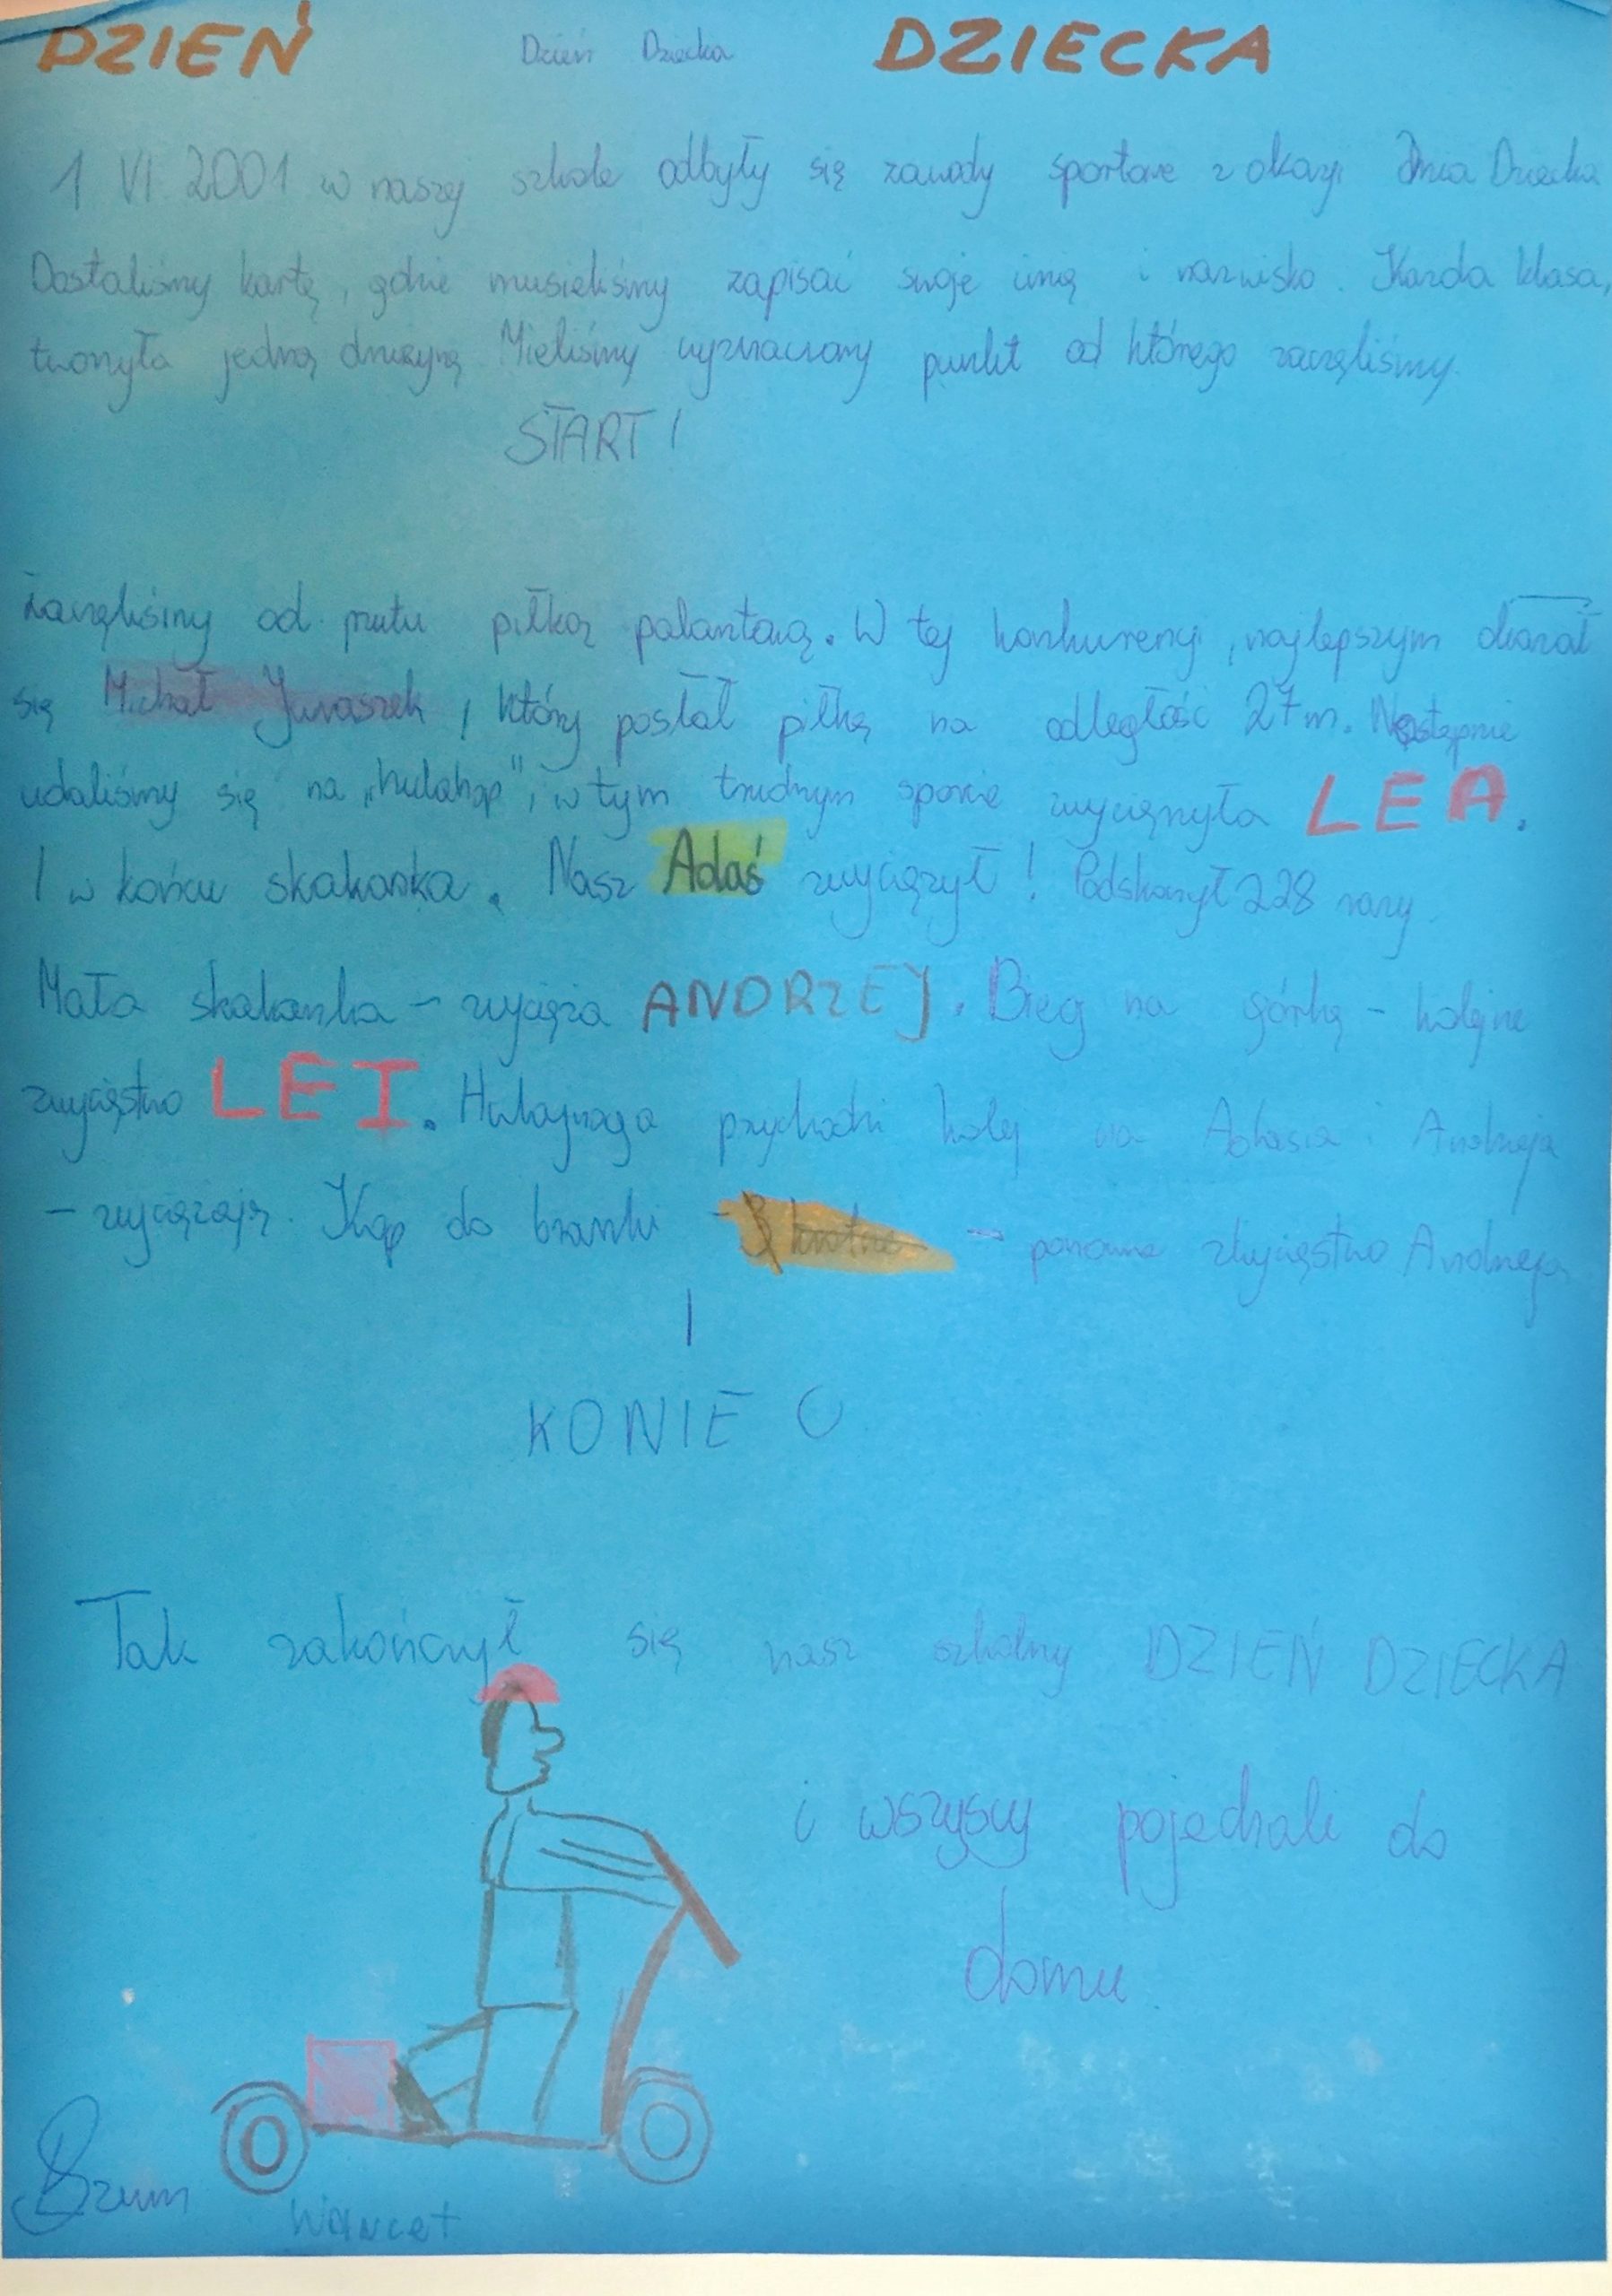 DZIEŃ Dzień Dziecka DZIECKA
1 VI 2001 w naszej szkole odbyły się zawody sportowe z okazji Dnia Dziecka
Dostaliśmy kartę, gdzie musieliśmy zapisać swoje imię i nazwisko. Każda klasa,
tworzyła jedną drużynę. Mieliśmy wyznaczony punkt od którego zaczęliśmy.
START!
Zaczęliśmy od rzutu piłką palantową. W tej konkurencji, najlepszym okazał
się Michał Juraszek, który posłał piłkę na odległość 27 m. Następnie
udaliśmy się na „hulahop", w tym trudnym sporcie zwyciężyła LEA.
I w końcu skakanka. Nasz Adaś zwyciężył! Podskoczył 228 razy.
Mała skakanka - zwycięża ANDRZEJ. Bieg na górkę - kolejne
zwycięstwo LEI. Hulajnoga przychodzi kolej na Adasia i Andrzeja
- zwyciężają. Kop do bramki - - ponowne zwycięstwo Andrzeja
I
KONIEC
Tak zakończył się nasz szkolny DZIEŃ DZIECKA
i wszyscy pojechali do
domu.
Bzum